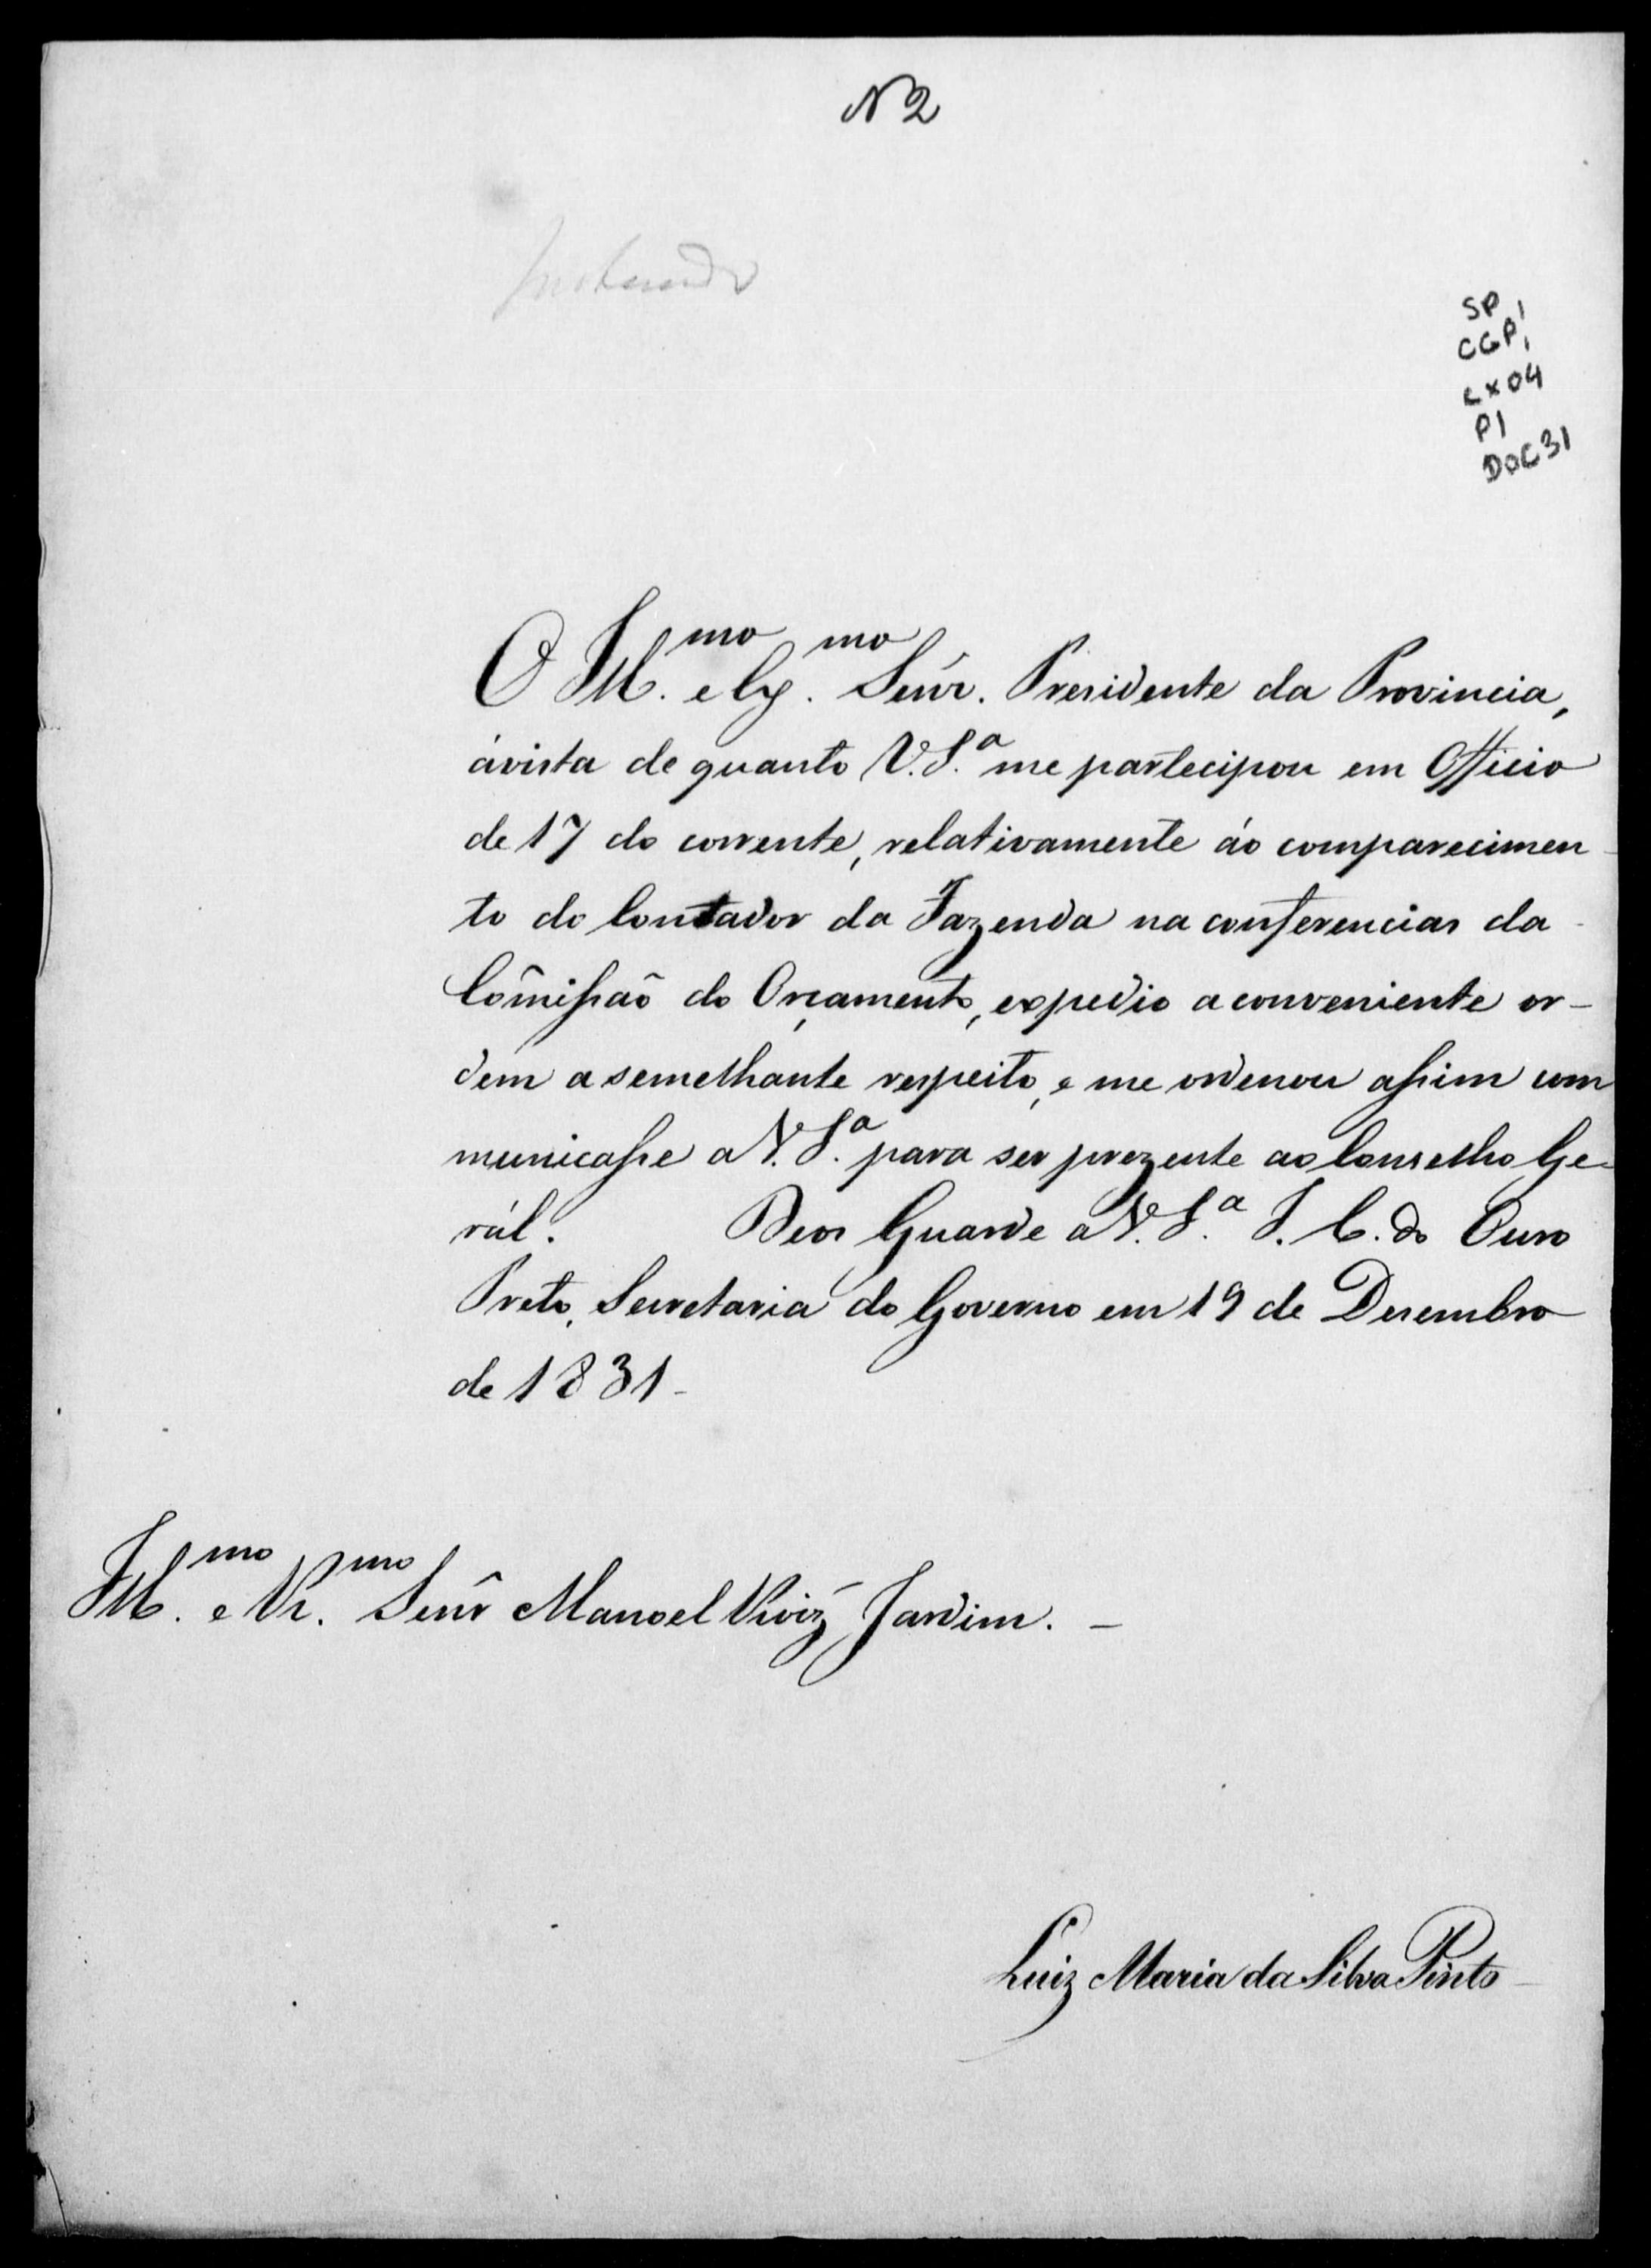 N 2
SP
CGP1
CX 04
P1
DOC 31
O Ill.mo e Ex.mo Senr. Presidente da Provincia,
ávista de quanto V. S.a me partecipou em Officio
de 17 do corrente, relativamente áo comparecimen-
to do Contador da Fazenda na conferencias da
Cõmissaõ do Orçamento, expedio a conveniente or-
dem a semelhante respeito, e me ordenou assim com
municasse a V. S.a para ser prezente ao Conselho Ge-
rál. Deos Guarde a V. S.a I. C. do Ouro
Preto, Secretaria do Governo em 19 de Desembro
de 1831-
Ill.mo e R.mo Senr Manoel Roiz Jardim. -
Luiz Maria da Silva Pinto